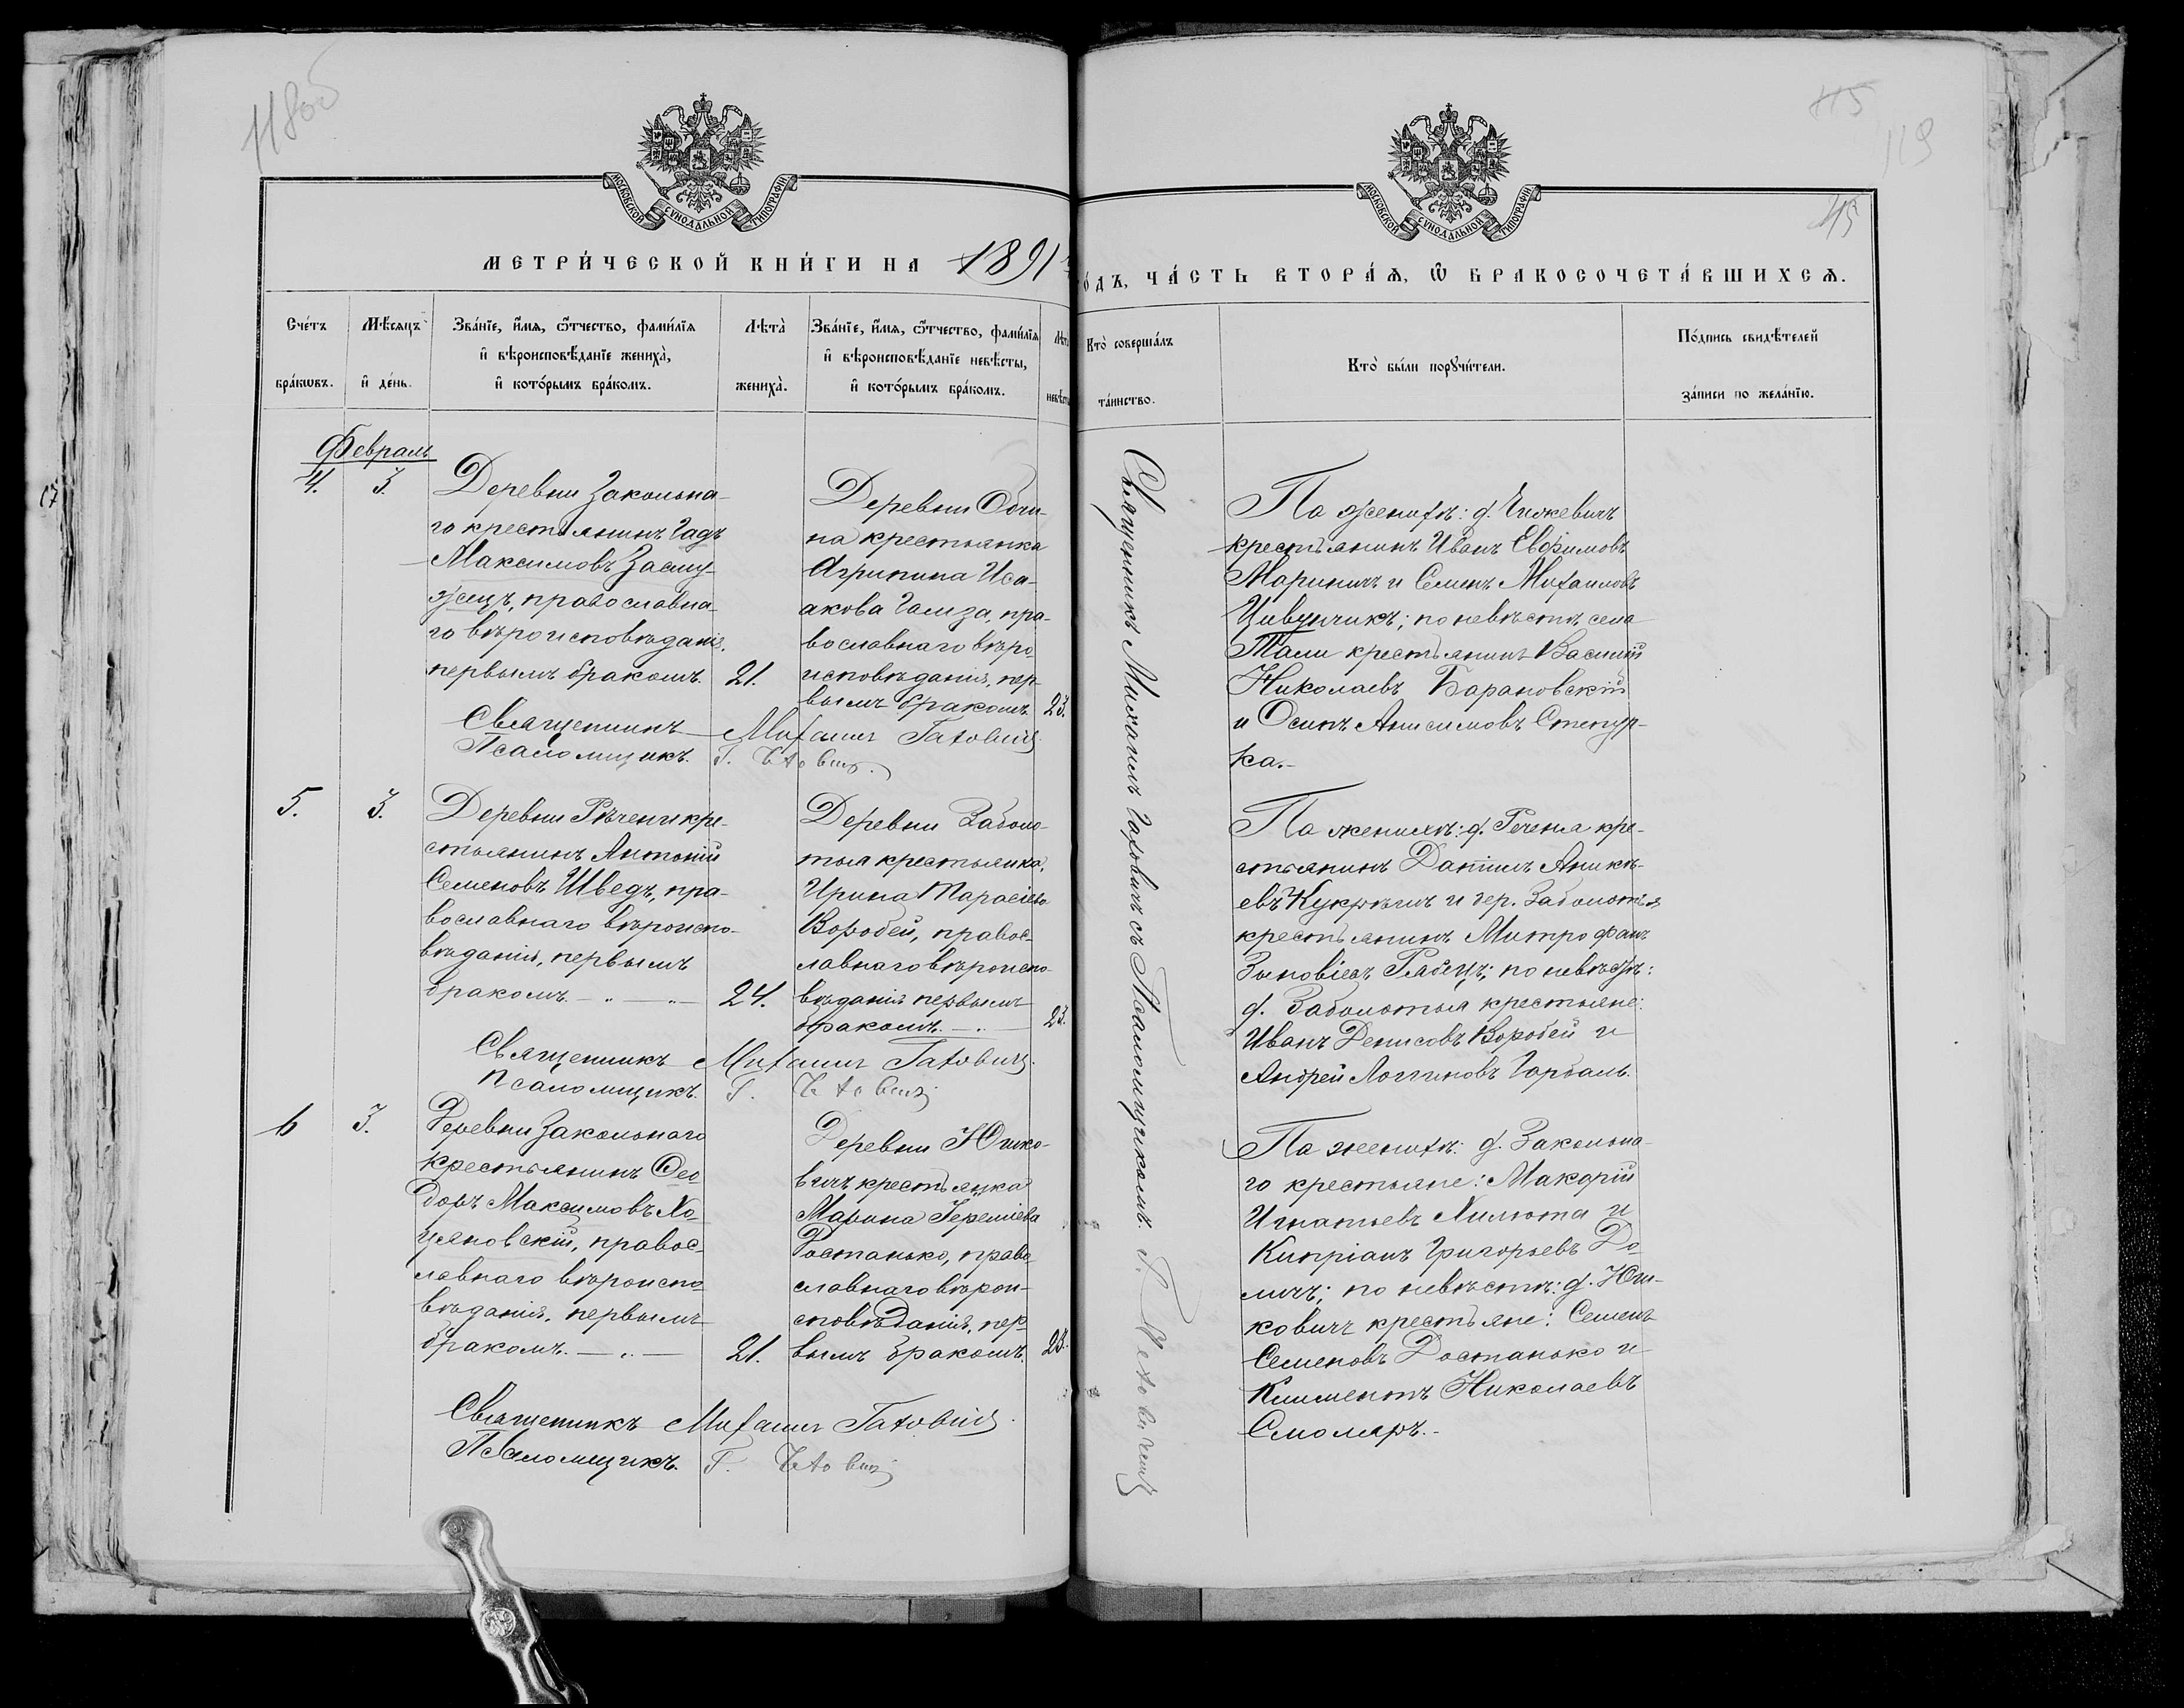 118об
115
119
45
МОСКОВСКОЙ СѴНОДАЛЬНОЙ ТИПОГРАФІИ
МОСКОВСКОЙ СѴНОДАЛЬНОЙ ТИПОГРАФІИ
МЕТРИ́ЧЕСКОЙ КНИ́ГИ НА 1891
О́ДЪ, ЧА́СТЬ ВТОРА́Ѧ, Ѽ БРАКОСОЧЕТА́ВШИХСѦ.
Сче́тъ бра́кѡвъ.
Мѣ́сѧцъ и҆ де́нь.
Зва́нїе, и҆́мѧ, ѻ҆́тчество, фами́лїѧ
и҆ вѣроисповѣ́данїе жениха̀,
и҆ кото́рымъ бра́комъ.
Лѣта̀
жениха̀.
Зва́нїе, и҆́мѧ, ѻ҆́тчество, фами́лїѧ
и҆ вѣроисповѣ́данїе невѣ́сты,
и҆ кото́рымъ бра́комъ.
Кто̀ соверша́лъ
та́инство.
Кто̀ бы́ли порꙋчи́тели.
По́дпись свидѣ́телей
за́писи по жела́нїю.
Февраль
4. 3.
Деревни Заколъна-
го крестьянинъ Гадъ
Максимовъ
православна-
го вѣроисповѣданія,
первымъ бракомъ. 21.
Деревни
на крестьянка
Агрипина Иса-
акова пра-
вославнаго вѣро-
исповѣданія, пер-
вымъ бракомъ. 23.
Священникъ Михаилъ Гаховичъ
Псаломщикъ. Г.
По женихѣ: д. Чижевичъ
крестьянинъ Иванъ Евфимовъ
Мариничъ и Семенъ Михаиловъ
Цивунчикъ; по невѣстѣ села
Тали крестьянинъ Василій
Николаевъ Барановскій
и Осипъ Анисимовъ Степур-
ка.-
5. 3.
Деревни Рѣчени кре-
стьянинъ Антоній
Семеновъ Шведъ, пра-
вославнаго вѣроиспо-
вѣданія, первымъ
бракомъ. 24.
Деревни Заболо-
тья крестьянка
Ирина Тарасіева
Воробей, правос-
лавнаго вѣроиспо-
вѣданія первымъ
бракомъ. 23.
Священникъ Михаилъ Гаховичъ.
Псаломщикъ. Г.
По женихѣ: д. Реченя кре-
стьянинъ Даніилъ Аникѣ-
евъ и дер. Заболотья
крестьянинъ Митрофанъ
Зиновіевъ Рабецъ; по невѣстѣ:
д. Заболотья крестьяне:
Иванъ Денисовъ Воробей и
Андрей Логгиновъ Горбаль.
6 3.
Деревни Заколънаго
крестьянинъ Ѳео-
доръ Максимовъ Хо-
цяновскій, правос-
лавнаго вѣроиспо-
вѣданія, первымъ
бракомъ. 21.
Деревни Юшко-
вичъ крестьянка
Марина Іереміева
Достанько, право-
славнаго вѣрои-
сповѣданія, пер-
вымъ бракомъ. 23.
Священникъ Михаилъ Гаховичъ.
Псаломщикъ. Г.
По женихѣ: д. Заколъна-
го крестьяне: Макарій
Игнатьевъ Хилюта и
Кипріанъ Григорьевъ До-
личъ; по невѣстѣ: д. Юш-
ковичъ крестьяне: Семенъ
Семеновъ Достанько и
Климентъ Николаевъ
Смоляръ.-
Священникъ Михаилъ Гаховичъ съ Псаломщикомъ. Г.